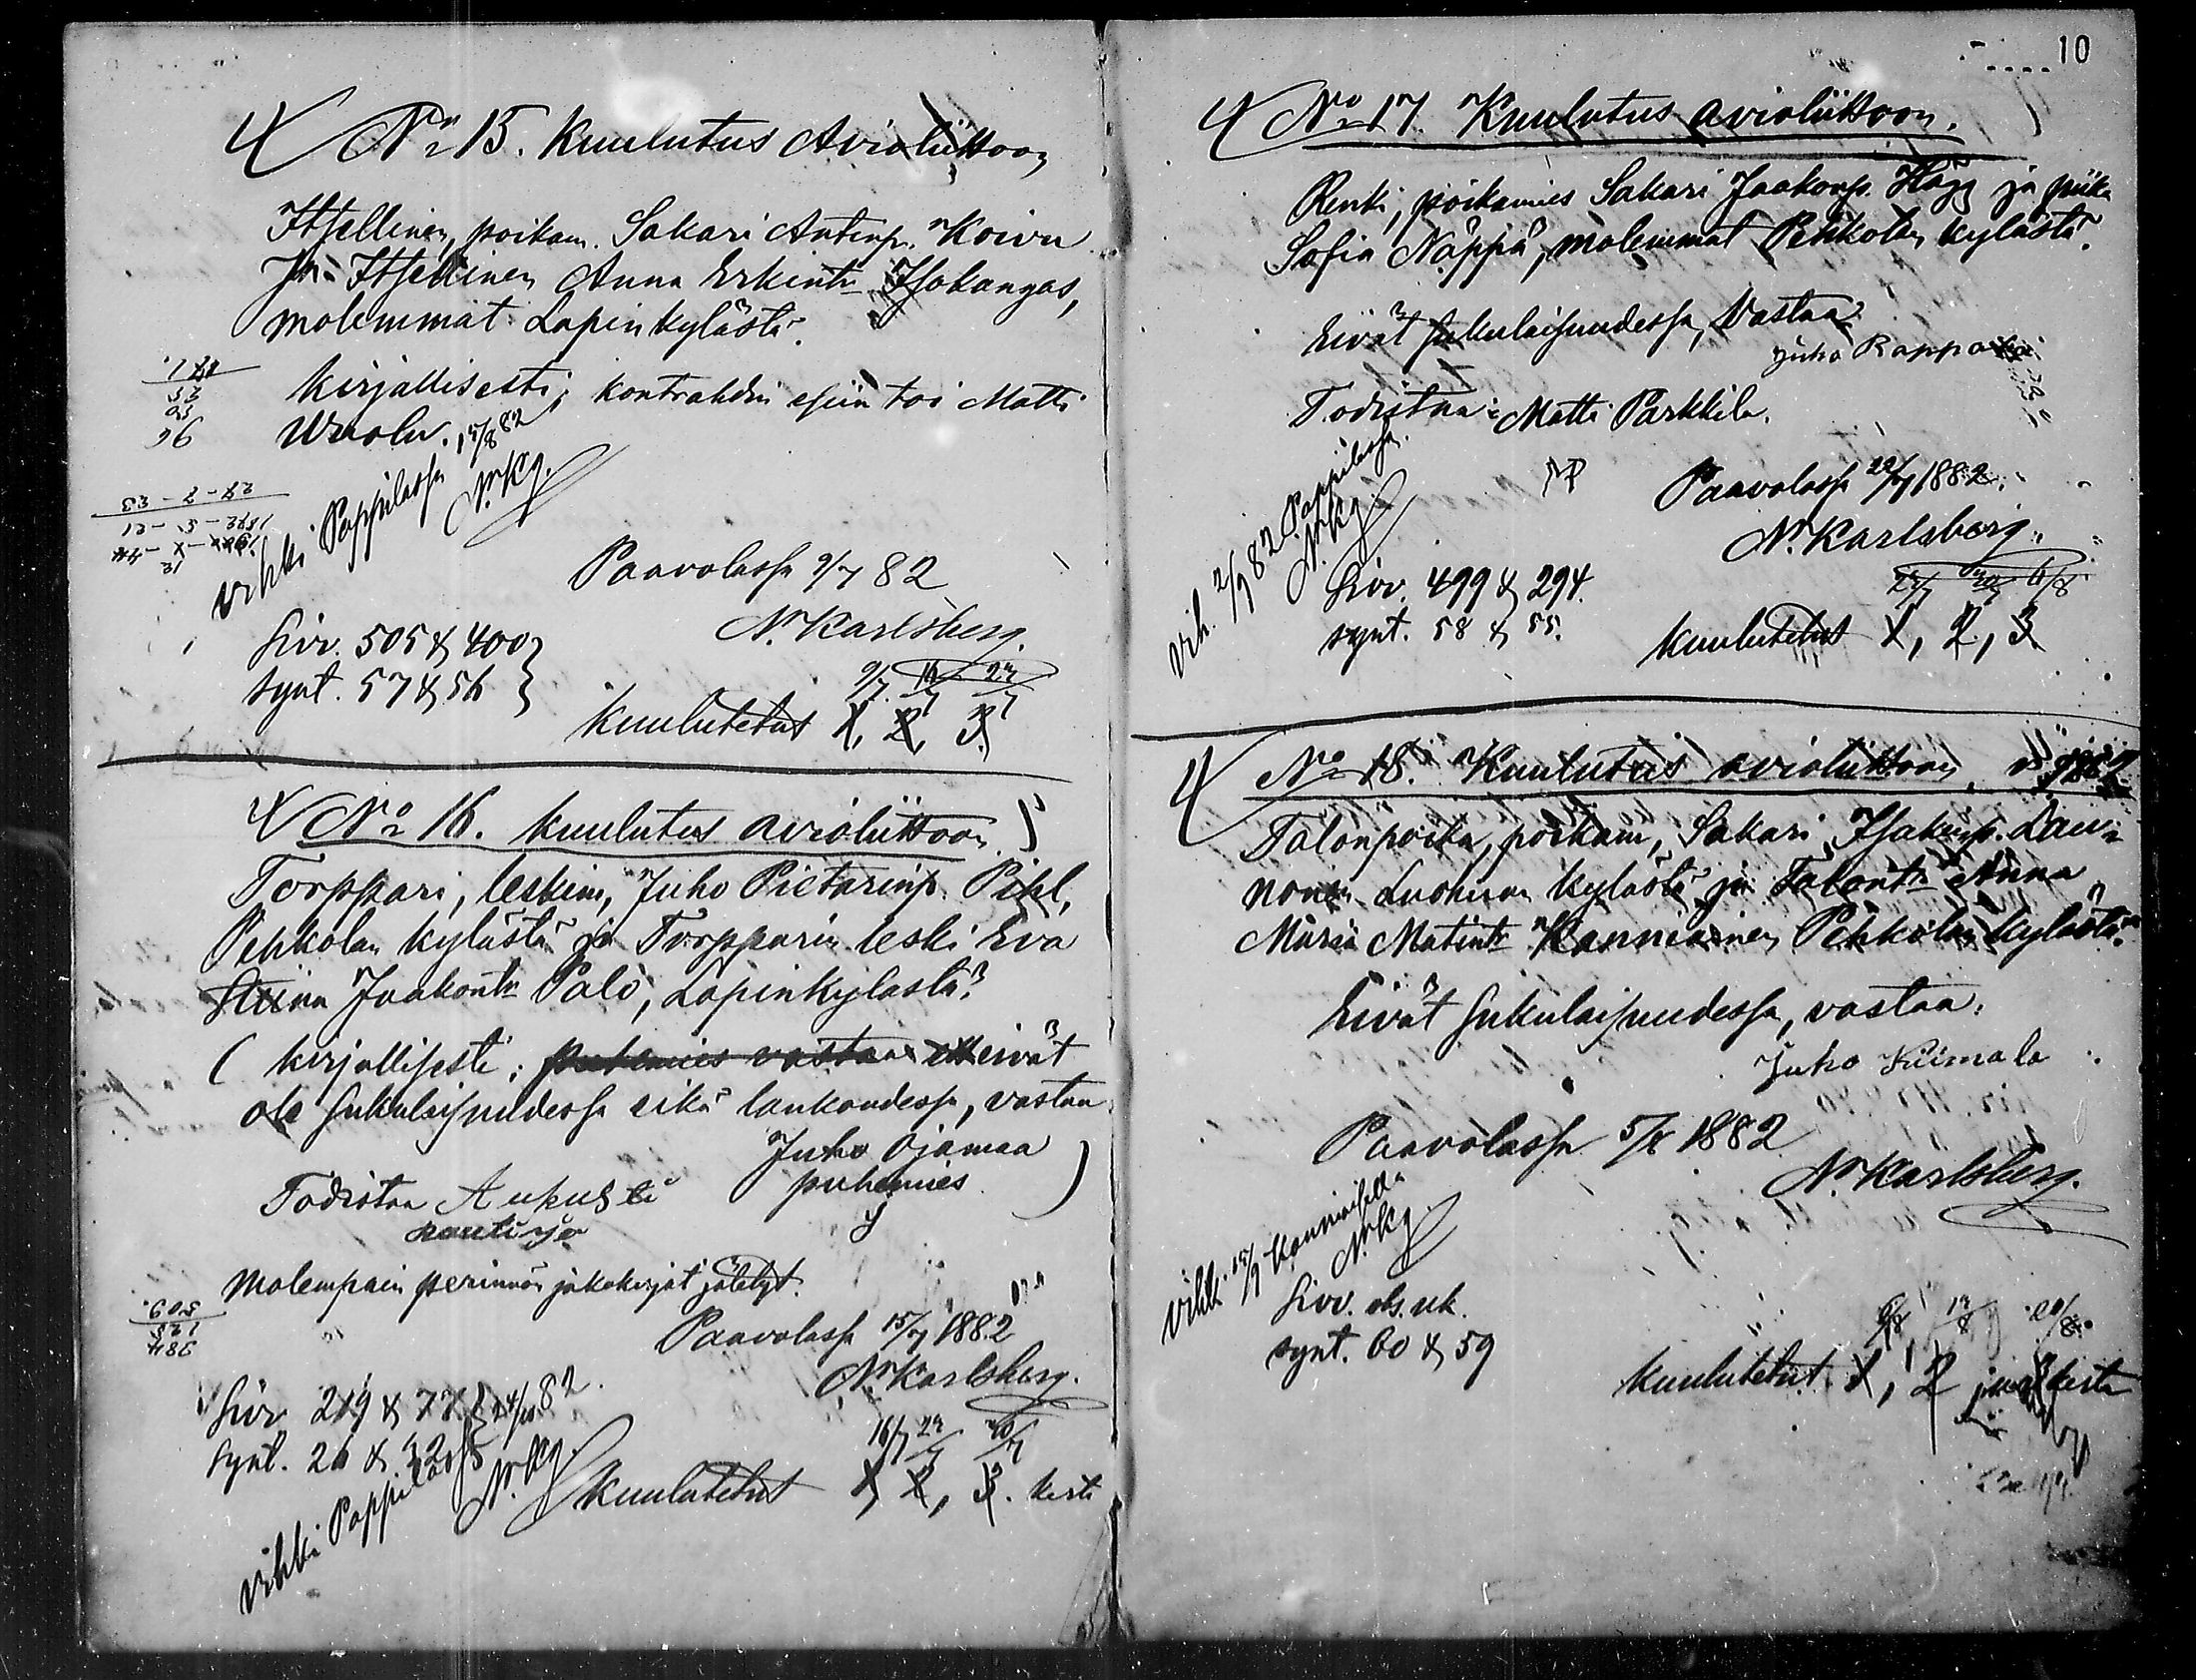 No 15. Kuulutus Avioliittoon
Itsellinen, poikam. Sakari Antinp. Koivu
ja Itsellinen Anna Erkintr Isokangas,
molemmat Lapinkylästä.
Kirjallisesti; kontrahdin esiin toi Matti
Uusolu.
vihki Pappilassa 15/8 82
N. Kg.
Paavolassa 9/7 82
N. Karlsberg.
Siv. 505 & 400
synt. 57 & 56
9/7 16/7 23/7
Kuulutetut 1, 2, 3.
No 16. Kuulutus avioliittoon
Torppari, leskim, Juho Pietarinp. Pihl,
Pehkolan kylästä ja Torpparin leski Eva
Stiina Jaakontr Palo, Lapinkylästä.
( Kirjallisesti; puhemies vastaa ett eivät
ole sukulaisuudessa eikä lankoudessa, vastaa
Juho Ojamaa
puhemies )
Todistaa Aukusti
Molempain perinnön jakokirjat jätetyt.
Paavolassa 15/7 1882
N. Karlsberg.
Siv. 219 & 77
synt. 26 & 32
vihki Pappilassa 82
N. Kg.
16/7 23/7 30/7
Kuulutetut 1, 2, 3. kerta
10
No 17 Kuulutus avioliittoon.
Renki, poikamies Sakari Jaakonp. Hägg ja piika
Sofia Näppä, molemmat Pehkolan kylästä.
Eivät sukulaisuudessa, Vastaa
Juho Rappo
Todistaa: Matti Parkkila.
Paavolassa 22/7 1882.
N. Karlsberg.
vih. 2/9 82 Pappilassa.
N. Kg.
Siv. 499 & 294.
synt. 58 & 55.
23/7 30/7 6/8
Kuulutetut 1, 2, 3
No 18. Kuulutus avioliittoon, 1882
Talonpoika, poikam, Sakari Isakinp. Lau-
nonen Luohuan kylästä ja Talontr Anna
Maria Matintr Kanniainen Pehkolan kylästä.
Eivät sukulaisuudessa, vastaa.
Juho Kiimala
Paavolassa 5/8 1882
N. Karlsberg.
Vihki 15/9 Kanniaisella
N. Kg.
Siv. ols. uk.
synt. 60 & 59
6/8 13/8 20/8
Kuulutetut 1, 2 kerta